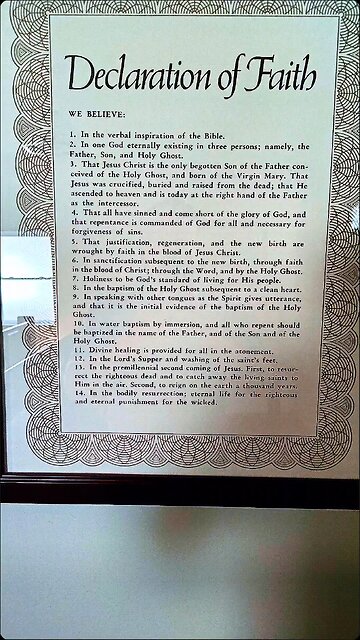 Declaration of Faith
WE BELIEVE:
1. In the verbal inspiration of the Bible.
2. In one God eternally existing in three persons; namely, the
Father, Son, and Holy Ghost.
3. That Jesus Christ is the only begotten Son of the Father con-
ceived of the Holy Ghost, and born of the Virgin Mary. That
Jesus was crucified, buried and raised from the dead; that He
ascended to heaven and is today at the right hand of the Father
as the intercessor.
4. That all have sinned and come short of the glory of God, and
that repentance is commanded of God for all and necessary for
forgiveness of sins.
5. That justification, regeneration, and the new birth are
wrought by faith in the blood of Jesus Christ.
6. In sanctification subsequent to the new birth, through faith
in the blood of Christ; through the Word, and by the Holy Ghost.
7. Holiness to be God's standard of living for His people.
8. In the baptism of the Holy Ghost subsequent to a clean heart.
9. In speaking with other tongues as the Spirit gives utterance,
and that it is the initial evidence of the baptism of the Holy
Ghost.
10. In water baptism by immersion, and all who repent should
be baptized in the name of the Father, and of the Son and of the
Holy Ghost.
11. Divine healing is provided for all in the atonement.
12. In the Lord's Supper and washing of the saint's feet.
13. In the premillennial second coming of Jesus. First, to resur-
rect the righteous dead and to catch away the living saints to
Him in the air. Second, to reign on the earth a thousand years.
14. In the bodily resurrection; eternal life for the righteous
and eternal punishment for the wicked.